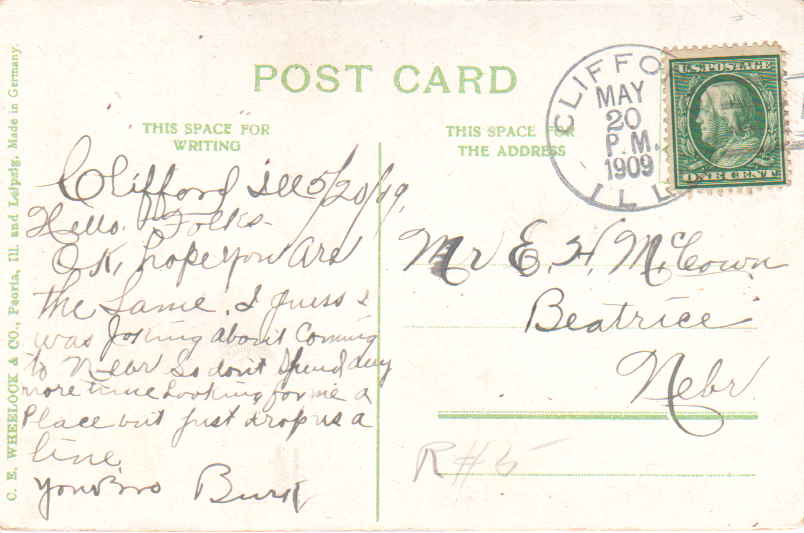 POST CARD
THIS SPACE FOR
WRITING
THIS SPACE FOR
THE ADDRESS
CLIFFO
MAY
20
P.M.
1909
ILL
U.S. POSTAGE
ONE CENT
C. E. WHEELOCK & CO., Peoria, Ill. and Leipzig. Made in Germany.
Clifford Ill 5/20/09,
Hello. Folks
O.K, hope you are
the same. I guess I
was Joking about coming
to Nebr so dont spend any
more time Looking for me a
Place but just drop us a
line
your Bro Burt
Mr E. H. McCown
Beatrice
Nebr
R#5